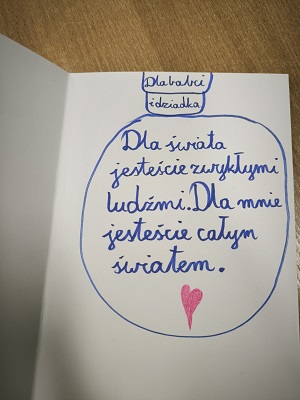 Dla babci
i dziadka
Dla świata
jesteście zwykłymi
ludźmi. Dla mnie
jesteście całym
światem.